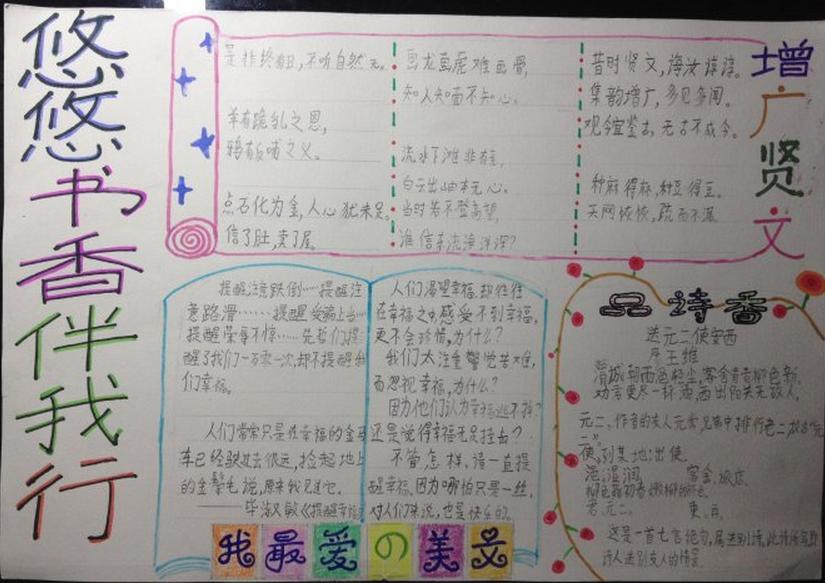 悠悠书香伴我行
增广贤文
是非终有日,不听自然无。
羊有跪乳之恩,
鸦有反哺之义。
点石化为金,人心犹未足。
信了肚,卖了屋。
画龙画虎难画骨,
知人知面不知心。
流水下滩非有意,
白云出岫本无心。
当时若不登高望,
谁信东流海洋深?
昔时贤文,诲汝谆谆。
集韵增广,多见多闻。
观今宜鉴古,无古不成今。
种麻得麻,种豆得豆。
天网恢恢,疏而不漏
提醒注意跌倒……提醒注
意路滑……提醒受骗上当…
提醒荣辱不惊……先哲们提
醒了我们一万零一次,却不提醒我
们幸福。
人们常常只是在幸福的金马
车已经驶过去很远,捡起地上
的金鬃毛说,原来我见过它。
——毕淑敏《提醒幸福》
人们渴望幸福,却往往
在幸福之时感受不到幸福,
更不会珍惜,为什么?
我们太注重警觉苦难,
而忽视幸福,为什么?
因为他们认为幸福逃不掉?
还是说得幸福无足挂齿?
不管怎样,请一直提
醒幸福,因为哪怕只是一丝,
对人们来说,也是快乐的。
我最爱の美文
品诗香
送元二使安西
唐王维
渭城朝雨浥轻尘,客舍青青柳色新,
劝君更尽一杯酒,西出阳关无故人。
元二,作者的友人元常,兄弟中排行老二,故名"元
二"
使,到某地;出使。
浥:湿润
客舍,旅店
君,元二
更,再
这是一首七言绝句,属送别诗,
诗人送别友人的情景